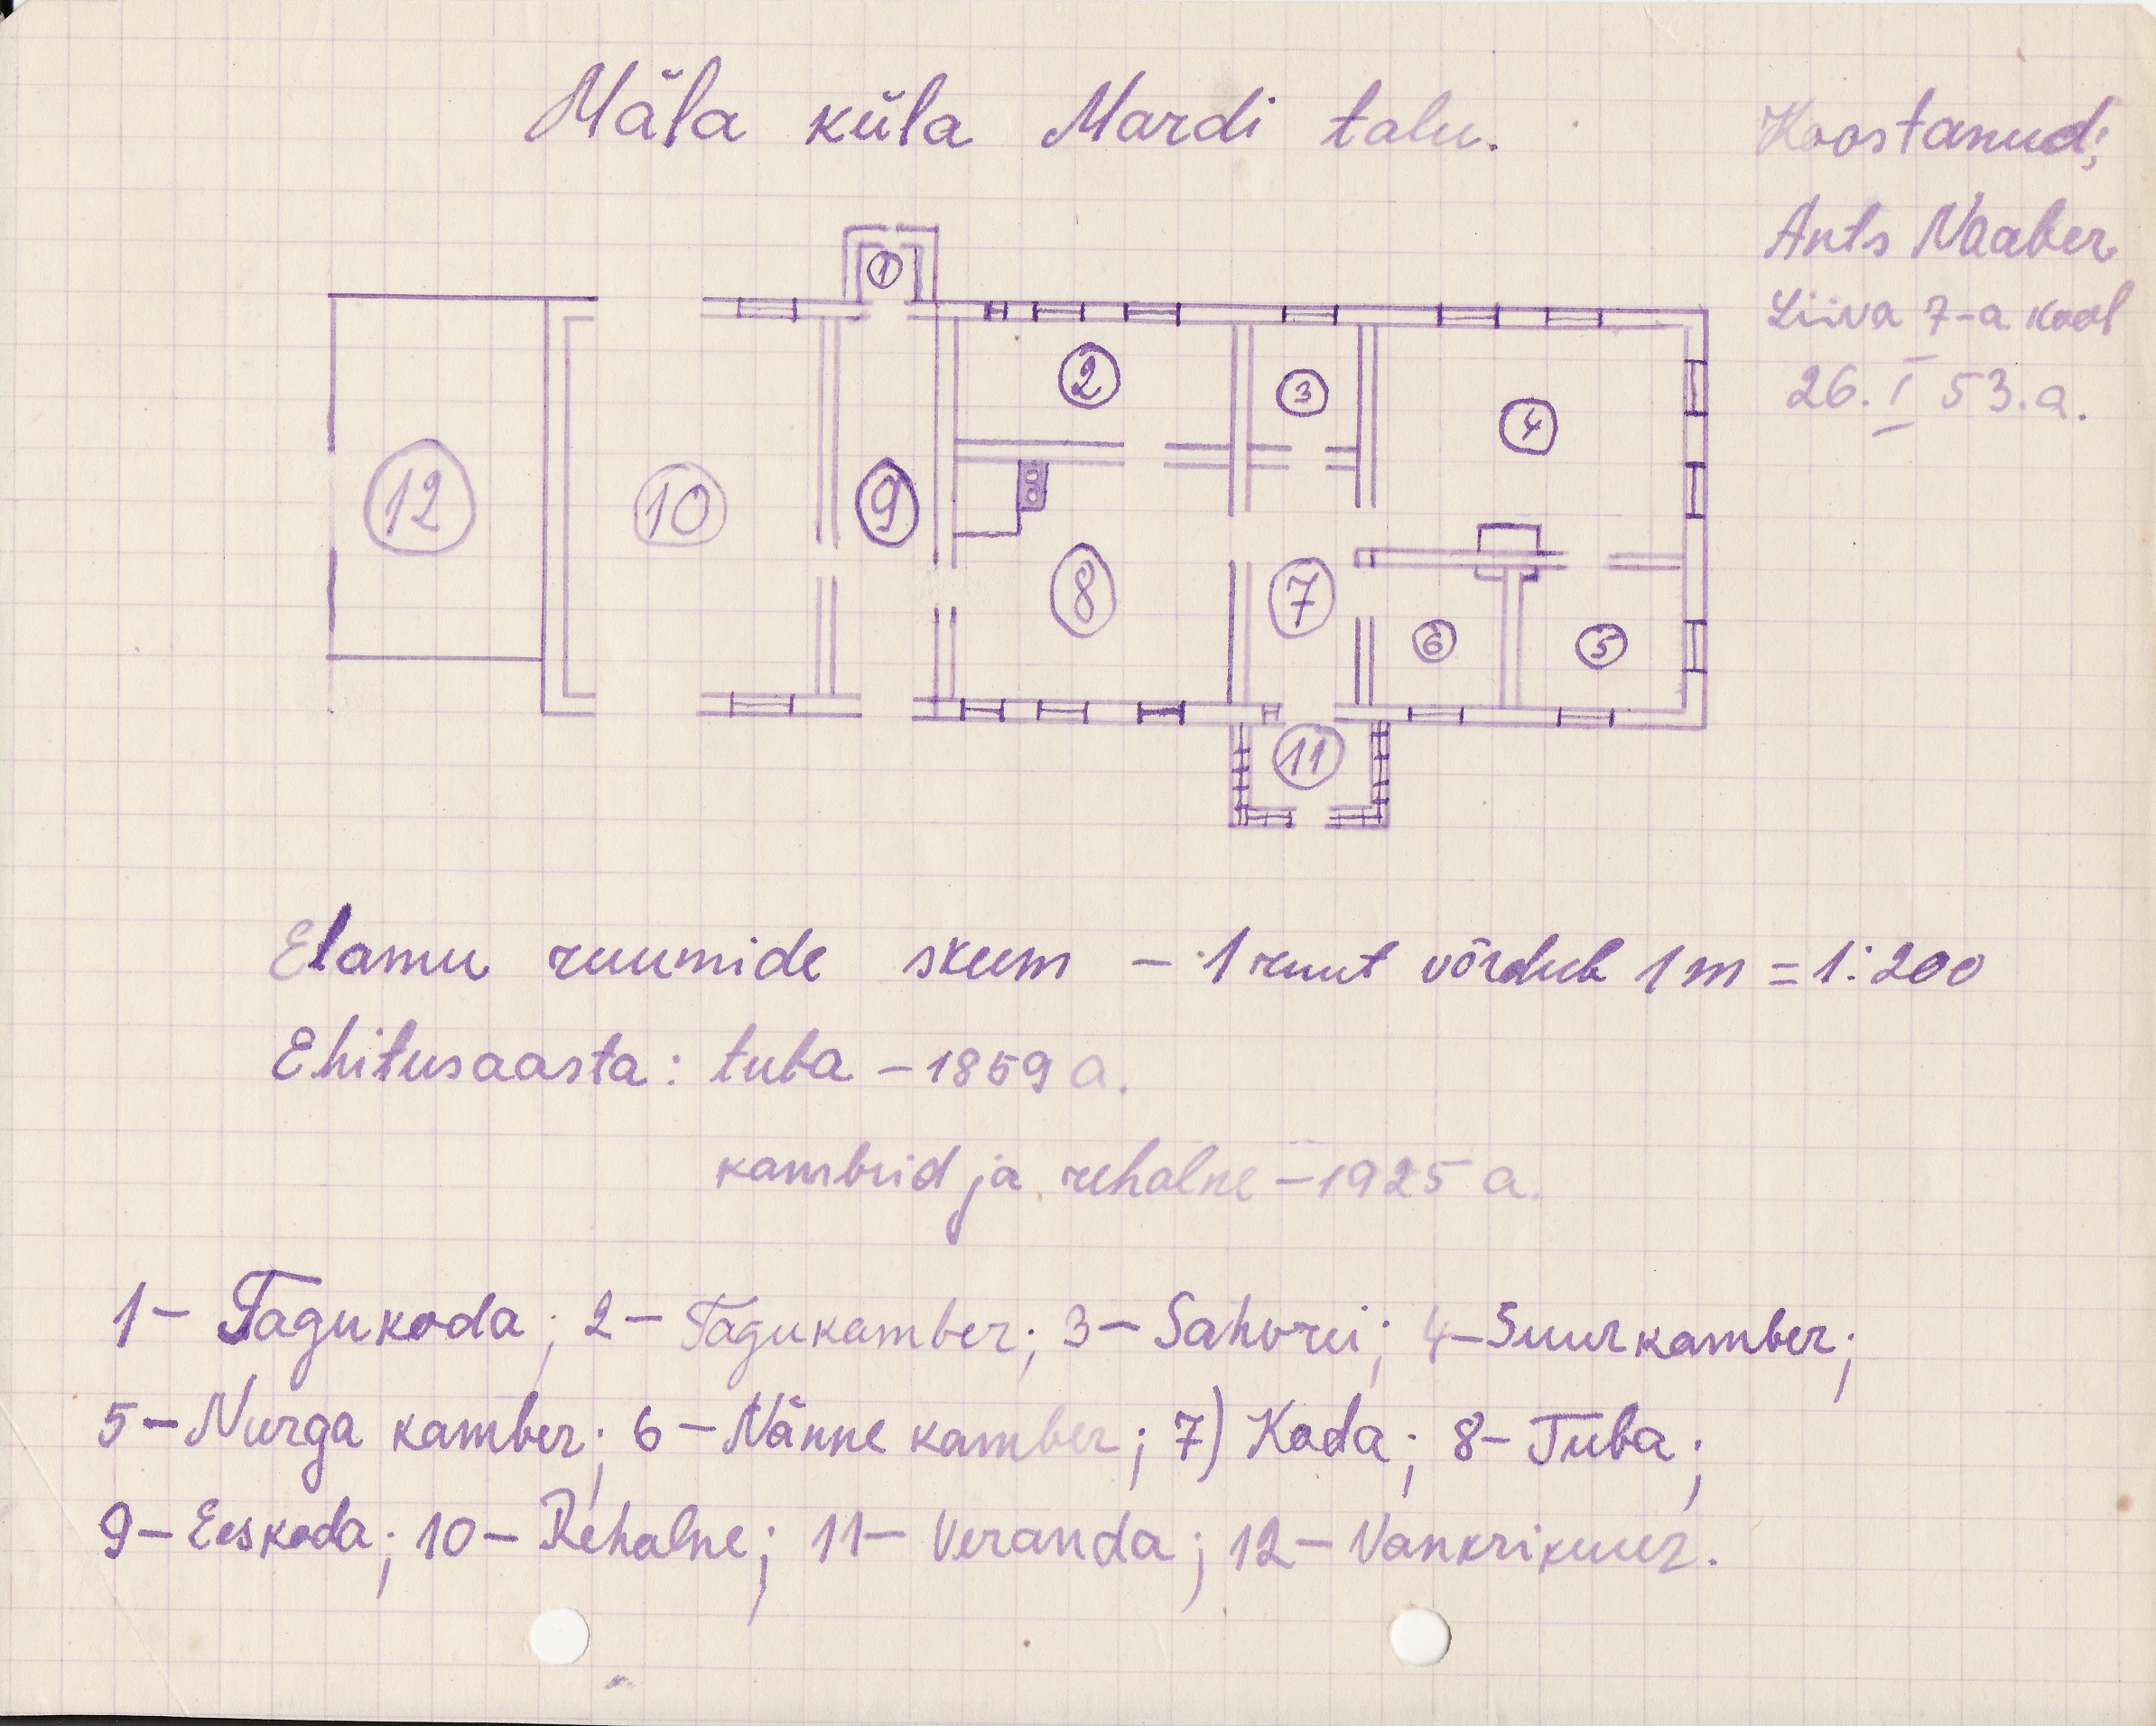 Mäla küla Mardi talu.
Koostanud;
Ants Naaber
Liiva 7-a. kool
26. I 53.a.
1
2
3
4
12
10
9
8
7
6
5
11
Elamu ruumide skeem – 1 ruut võrdub 1 m = 1:200
Ehitusaasta: tuba – 1859 a.
kambrid ja rehalne – 1925 a.
1– Tagukoda; 2– Tagukamber; 3– Sahvrei; 4–Suurkamber;
5–Nurga kamber; 6–Nänne kamber; 7) Koda; 8– Tuba;
9– Eeskoda; 10– Rehalne; 11– Veranda; 12– Vankrikuur.